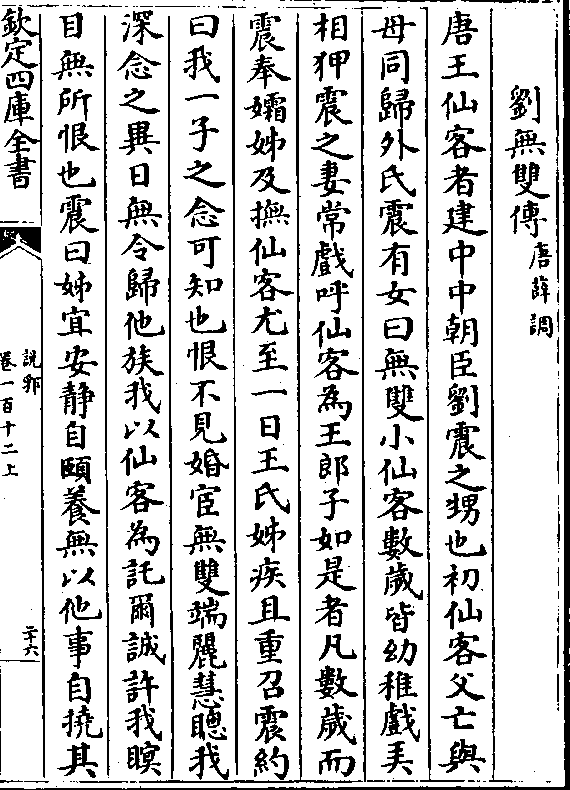 劉無雙傳 唐薛調
唐王仙客者建中中朝臣劉震之甥也初仙客父亡與
母同歸外氏震有女曰無雙小仙客數歲皆幼稚戲美
相狎震之妻常戲呼仙客為王郎子如是者凡數歲而
震奉孀姊及撫仙客尤至一日王氏姊疾且重召震約
曰我一子之念可知也恨不見婚宦無雙端麗慧聰我
深念之異日無令歸他族我以仙客為託爾誠許我瞑
目無所恨也震曰姊宜安静自頤養無以他事自撓其
欽定四庫全書
說郛
卷一百十二上
二十六